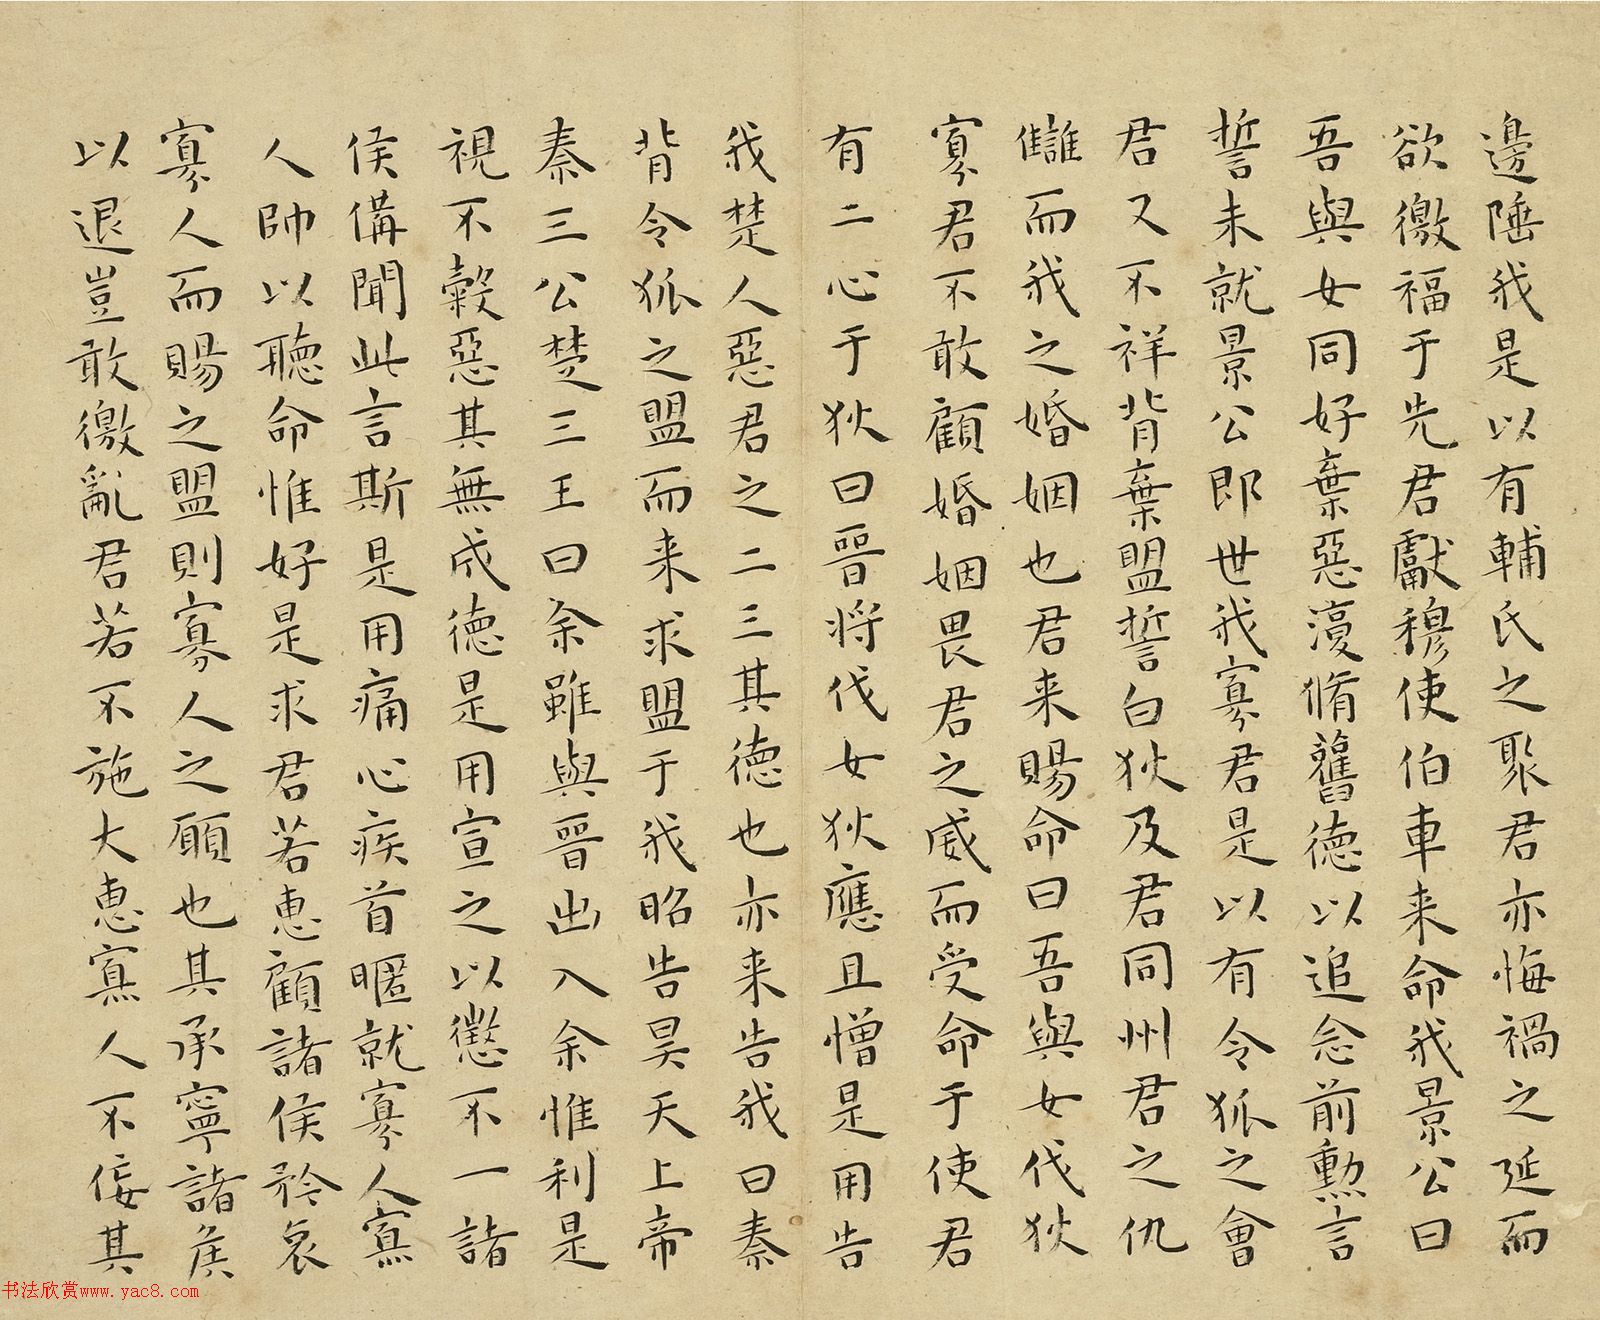 邊陲我是以有輔氏之聚君亦悔禍之延而
欲徼福于先君獻穆使伯車来命我景公曰
吾與女同好棄惡澓脩舊德以追念前勲言
誓未就景公即世我寡君是以有令狐之會
君又不祥背棄盟誓白狄及君同州君之仇
讎而我之婚姻也君来賜命曰吾與女伐狄
寡君不敢顧婚姻畏君之威而受命于使君
有二心于狄曰晉将伐女狄應且憎是用告
我楚人惡君之二三其德也亦来告我曰秦
背令狐之盟而来求盟于我昭告昊天上帝
秦三公楚三王曰余雖與晉出入余惟利是
視不穀惡其無成德是用宣之以懲不一諸
侯備聞此言斯是用痛心疾首暱就寡人寡
人帥以聽命惟好是求君若惠顧諸侯矜哀
寡人而賜之盟則寡人之願也其承寧諸侯
以退豈敢徼亂君若不施大惠寡人不佞其
书法欣赏www.yac8.com